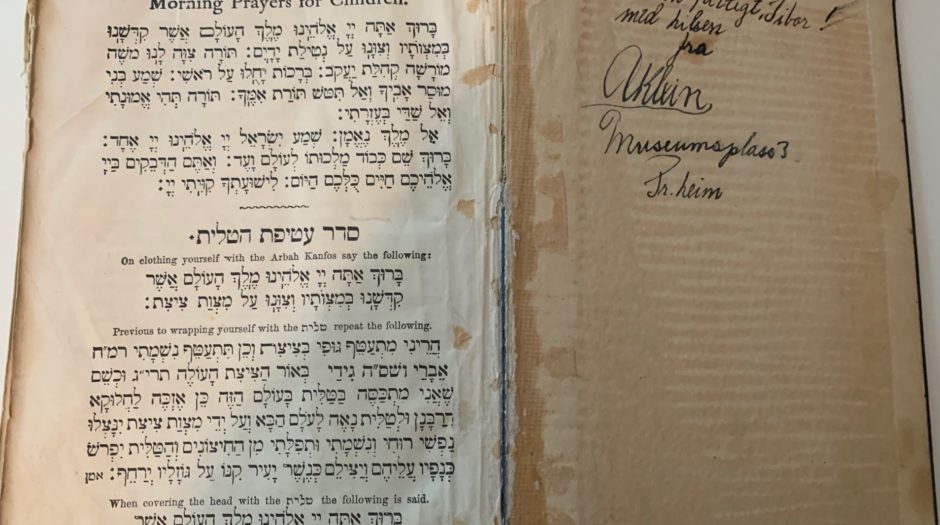 Morning Prayers for Children.
בָּרוּךְ אַתָּה יְיָ אֱלֹהֵינוּ מֶלֶךְ הָעוֹלָם אֲשֶׁר קִדְּשָׁנוּ
בְּמִצְוֹתָיו וְצִוָּנוּ עַל נְטִילַת יָדָיִם: תּוֹרָה צִוָּה לָנוּ משֶׁה
מוֹרָשָׁה קְהִלַּת יַעֲקֹב: בְּרָכוֹת יָחֻלוּ עַל רֹאשִׁי: שְׁמַע בְּנִי
מוּסַר אָבִיךָ וְאַל תִּטּשׁ תּוֹרַת אִמֶּךָ: תּוֹרָה תְּהִי אֱמוּנָתִי
וְאֵל שַׁדַּי בְּעֶזְרָתִי:
אֵל מֶלֶךְ נֶאֱמָן: שְׁמַע יִשְׂרָאֵל יְיָ אֱלֹהֵינוּ יְיָ אֶחָד:
בָּרוּךְ שֵׁם כְּבוֹד מַלְכוּתוֹ לְעוֹלָם וָעֶד: וְאַתֶּם הַדְּבֵקִים בַּיְיָ
אֱלֹהֵיכֶם חַיִּים כֻּלְּכֶם הַיּוֹם: לִישׁוּעָתְךָ קִוִּיתִי יְיָ:
סדר עטיפת הטלית.
On clothing yourself with the Arbah Kanfos say the following:
בָּרוּךְ אַתָּה יְיָ אֱלֹהֵינוּ מֶלֶךְ הָעוֹלָם אֲשֶׁר
קִדְּשָׁנוּ בְּמִצְוֹתָיו וְצִוָּנוּ עַל מִצְוַת צִיצִת:
Previous to wrapping yourself with the טלית repeat the following.
הֲרֵינִי מִתְעַטֵּף גּוּפִי בְּצִיצִת וְכֵן תִּתְעַטֵּף נִשְׁמָתִי רמ״ח
אֵבָרַי וּשס״ה גִּידַי בְּאוֹר הַצִּיצִת הָעוֹלֶה תרי״ג וּכְשֵׁם
שֶׁאֲנִי מִתְכַּסֶּה בְּטַלִּית בָּעוֹלָם הַזֶּה כֵּן אֶזְכֶּה לַחֲלוּקָא
דְרַבָּנָן וּלְטַלִּית נָאֶה לָעֹלָם הַבָּא וְעַל יְדֵי מִצְוַת צִיצִת יִנָּצְלוּ
נַפְשִׁי רוּחִי וְנִשְׁמָתִי וּתְפִלָּתִי מִן הַחִיצוֹנִים וְהַטַּלִּית יִפְרֹשׂ
כְּנָפָיו עֲלֵיהֶם וְיַצִּילֵם כְּנֶשֶׁר יָעִיר קִנּוֹ עַל גּוֹזָלָיו יְרַחֵף: אמן
When covering the head with the טלית the following is said.
בָּרוּךְ אַתָּה יְיָ אֱלֹהֵינוּ מֶלֶךְ הָעוֹלָם אֲשֶׁר
flittigt, Tibor !
med hilsen
fra
AKlein
Museumsplass 3
Tr.heim